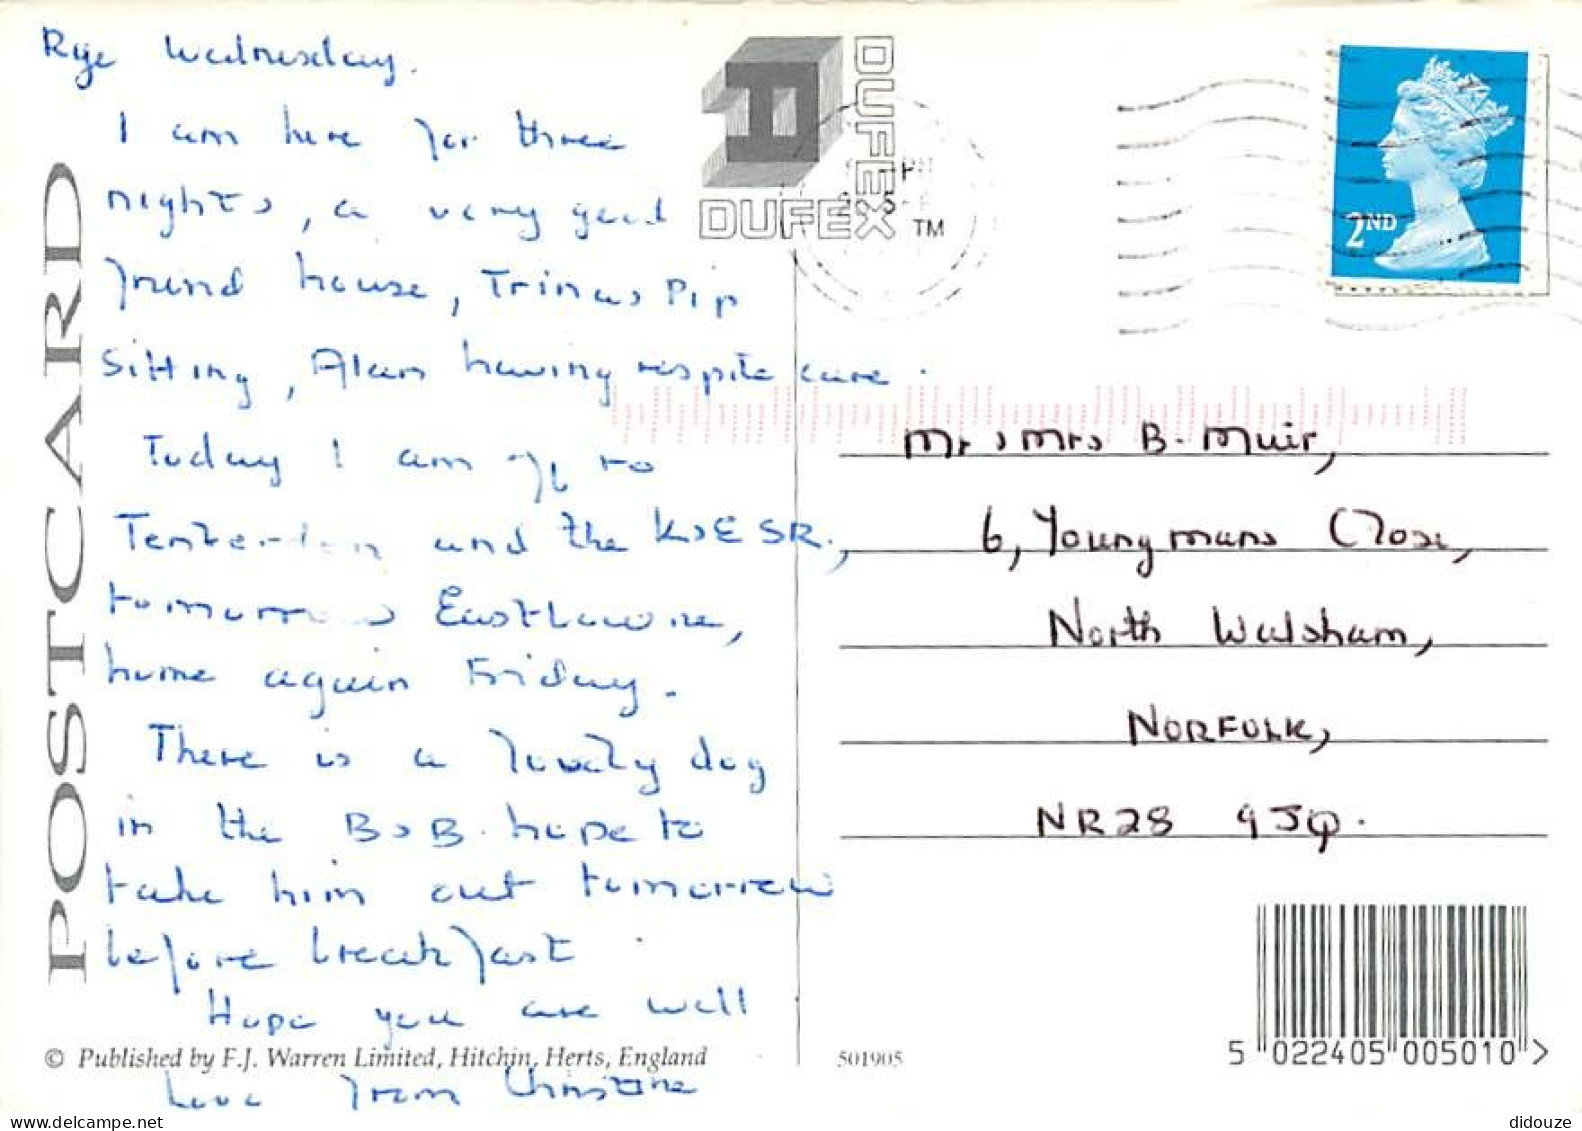 Rye Wednesday.
I am here for three
nights, a very good
friend house, Trina's Pip
Sitting, Alan having respite care.
Today I am off to
Tenterden and the K&ESR.,
tomorrow Eastbourne,
home again Friday.
There is a lovely dog
in the B&B. hope to
take him out tomorrow
before breakfast.
Hope you are well
Love from Christine
POSTCARD
© Published by F.J. Warren Limited, Hitchin, Herts, England
DUFEX
DUFEX TM
2ND
Mr & Mrs B. Muir,
6, Youngmans Close,
North Walsham,
NORFOLK,
NR28 9JQ.
501905
5 022405 005010 >
didouze